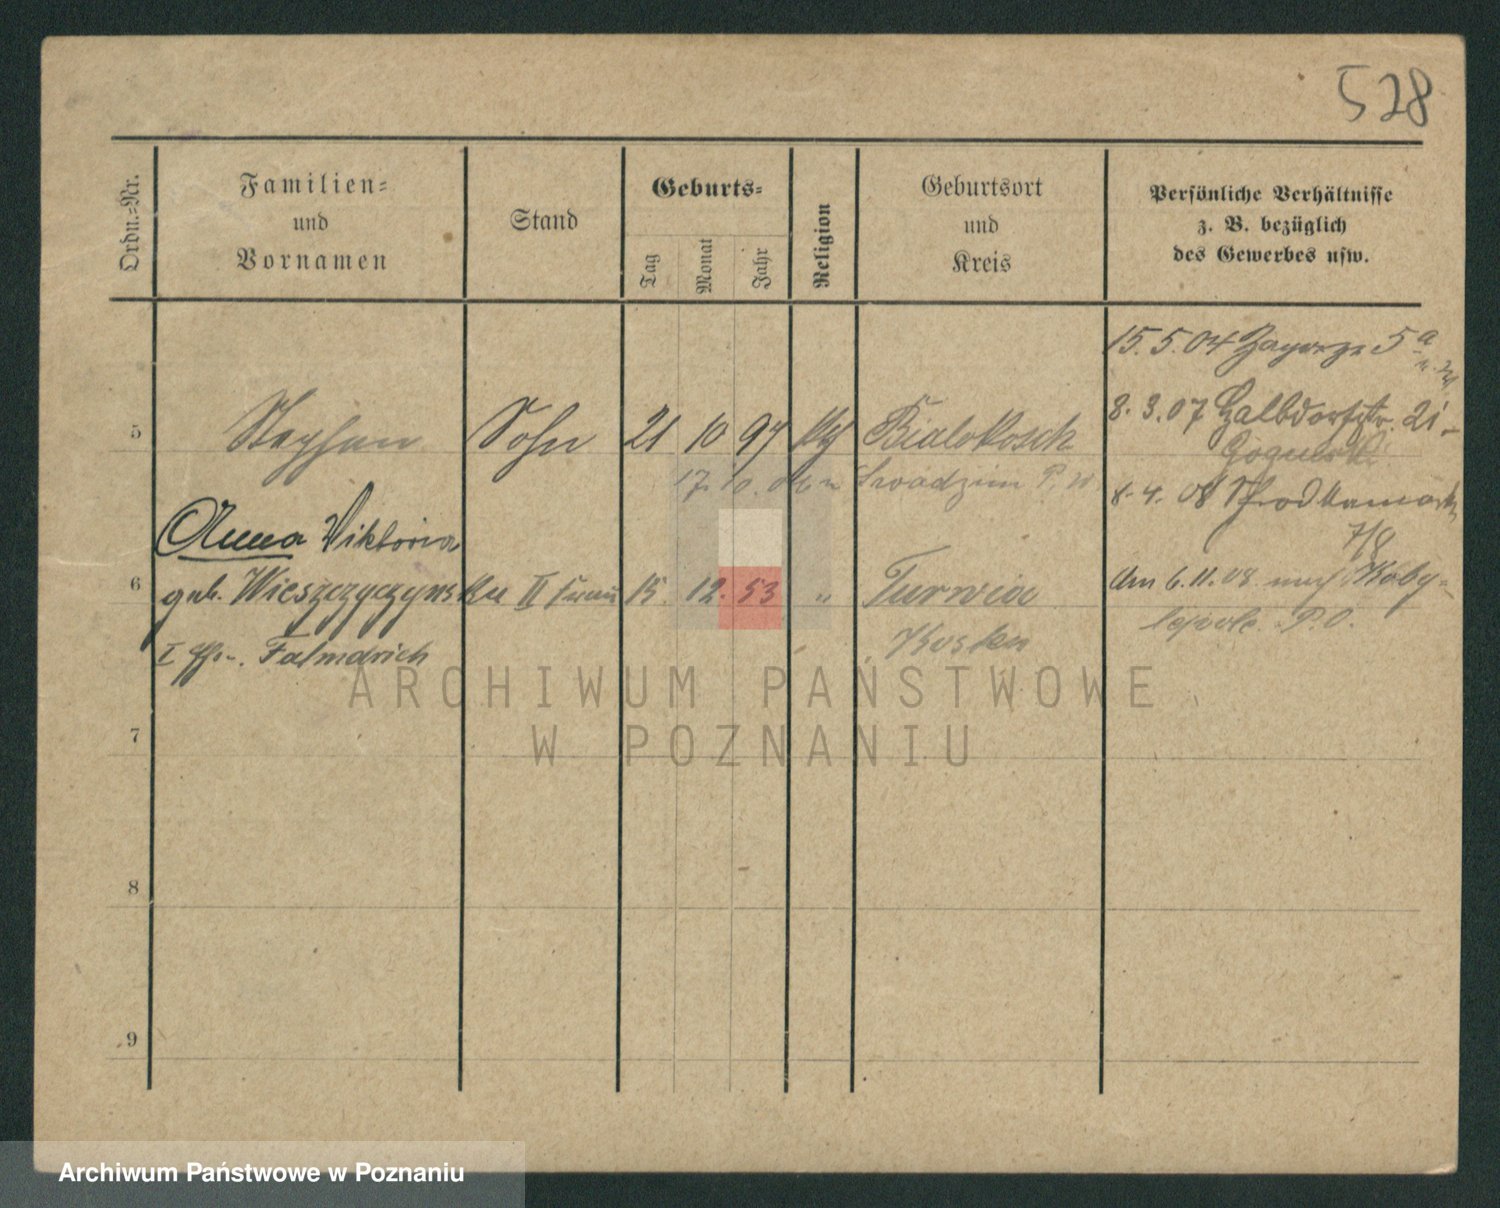 528
Ordn.-Nr.
Familien-
und
Vornamen
Stand
Geburts-
Tag
Monat
Jahr
Religion
Geburtsort
und
Kreis
Persönliche Verhältnisse
z. B. bezüglich
des Gewerbes usw.
15. 5. 04 Zagorze 5a
5 Stephan Sohn 21 10 97 Bialokosch
8. 3. 07 Halbdorfstr. 21
17. 10. 06 n Swadzim P. W
8. 4. 08
7/8
Anna Viktoria
6 geb. Wieszczyczynska II Frau 15. 12. 53 " Turwia
Am 6. 11. 08 nach Koby-
lepole P. O.
Kosten
I Falmdrich
7
8
9
ARCHIWUM PAŃSTWOWE
W POZNANIU
Archiwum Państwowe w Poznaniu